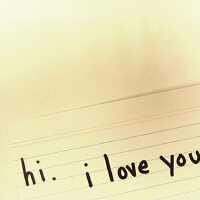 hi. i love you